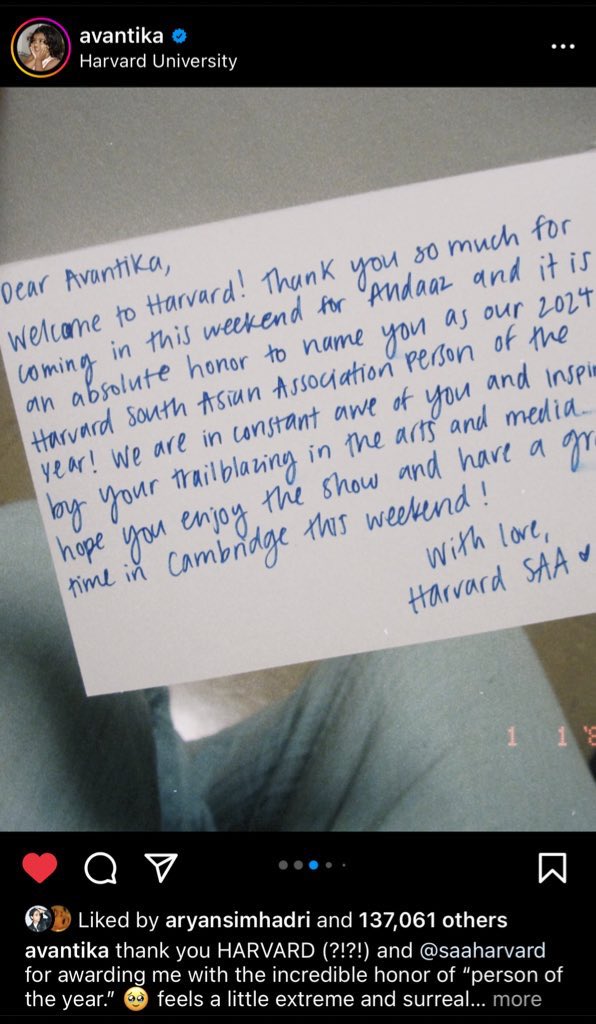 avantika
Harvard University
Dear Avantika,
Welcome to Harvard! Thank you so much for
coming in this weekend for Andaaz and it is
an absolute honor to name you as our 2024
Harvard South Asian Association person of the
year! We are in constant awe of you and inspi
by your trailblazing in the arts and media.
hope you enjoy the show and have a gr
time in Cambridge this weekend!
With love,
Harvard SAA
1 1 '8
Liked by aryansimhadri and 137,061 others
avantika thank you HARVARD (?!?!) and @saaharvard
for awarding me with the incredible honor of “person of
the year.” 🥹 feels a little extreme and surreal... more